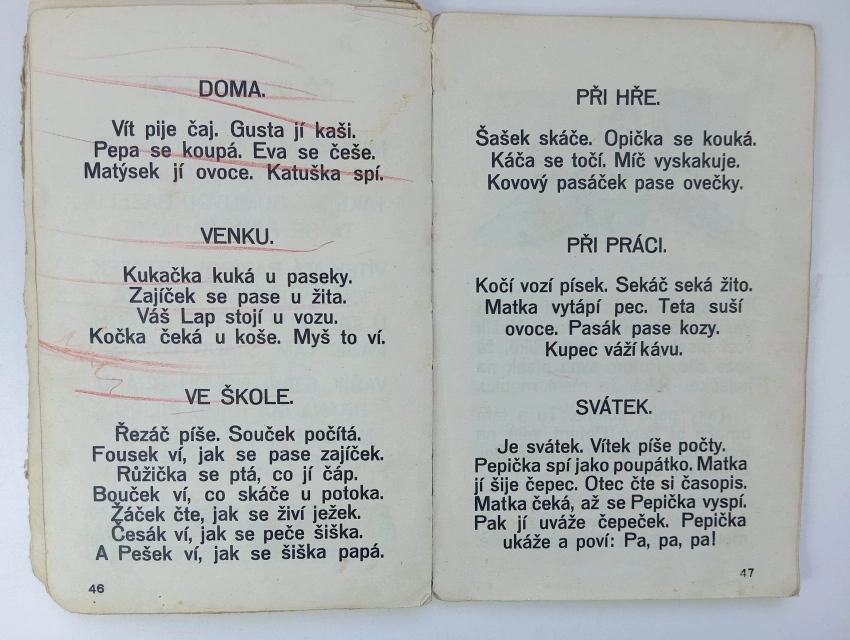 DOMA.
Vít pije čaj. Gusta jí kaši.
Pepa se koupá. Eva se češe.
Matýsek jí ovoce. Katuška spí.
VENKU.
Kukačka kuká u paseky.
Zajíček se pase u žita.
Váš Lap stojí u vozu.
Kočka čeká u koše. Myš to ví.
VE ŠKOLE.
Řezáč píše. Souček počítá.
Fousek ví, jak se pase zajíček.
Růžička se ptá, co jí čáp.
Bouček ví, co skáče u potoka.
Žáček čte, jak se živí ježek.
Česák ví, jak se peče šiška.
A Pešek ví, jak se šiška papá.
46
PŘI HŘE.
Šašek skáče. Opička se kouká.
Káča se točí. Míč vyskakuje.
Kovový pasáček pase ovečky.
PŘI PRÁCI.
Kočí vozí písek. Sekáč seká žito.
Matka vytápí pec. Teta suší
ovoce. Pasák pase kozy.
Kupec váží kávu.
SVÁTEK.
Je svátek. Vítek píše počty.
Pepička spí jako poupátko. Matka
jí šije čepec. Otec čte si časopis.
Matka čeká, až se Pepička vyspí.
Pak jí uváže čepeček. Pepička
ukáže a poví: Pa, pa, pa!
47